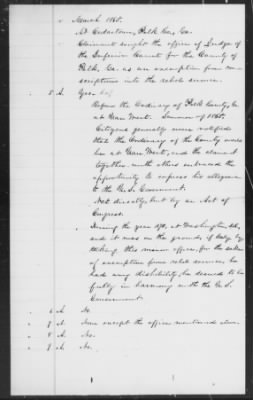 " March 1865.
At Cedartown, Polk Co., Ga.
Claimant sought the office of Judge of
the Inferior Court for the County of
Polk, Ga. as an exemption from con-
scription into the rebel service.
5 A. Yes.
Before the Ordinary of Polk County, Ga.
at Van Wert. Summer of 1865.
Citizens generally were notified
that the Ordinary of the County would
be at Van Wert, and the claimant
together with others embraced the
opportunity to express his allegiance
to the U.S. Government.
Not directly, but by an Act of
Congress.
During the year 1870, at Washington, D.C.
and it was on the grounds of only
taking this minor office, for the sake
of exemption from rebel service, he
had any disability, he seemed to be
fully in harmony with the U.S.
Government.
6 A. No.
7 A. None except the office mentioned above.
8 A. No.
9 A. No.